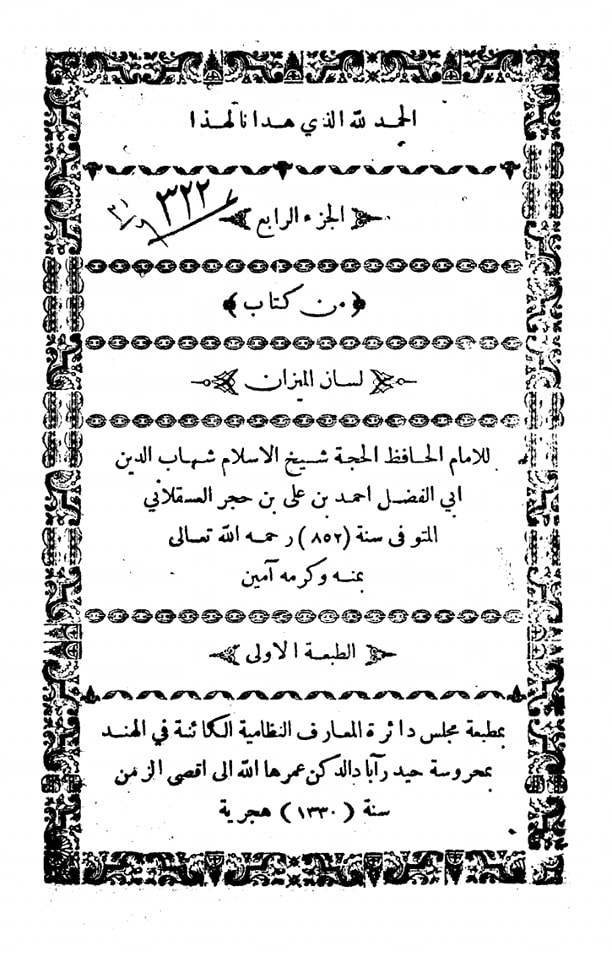 الحمد لله الذي هدانا لهذا
٣٢٢
الجزء الرابع
من كتاب
لسان الميزان
للامام الحافظ الحجة شيخ الاسلام شهاب الدين
ابي الفضل احمد بن علي بن حجر العسقلاني
المتوفى سنة (٨٥٢) رحمه الله تعالى
بمنه وكرمه آمين
الطبعة الاولى
بمطبعة مجلس دائرة المعارف النظامية الكائنة في الهند
بمحروسة حيدرآباد الدكن عمرها الله الى اقصى الزمن
سنة (١٣٣٠) هجرية